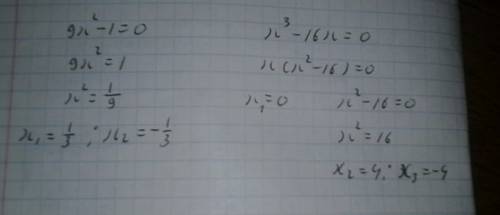 9x²-1=0
9x²=1
x²=1/9
x₁=1/3 ; x₂=-1/3
x³-16x=0
x(x²-16)=0
x₁=0 x²-16=0
x²=16
x₂=4; x₃=-4